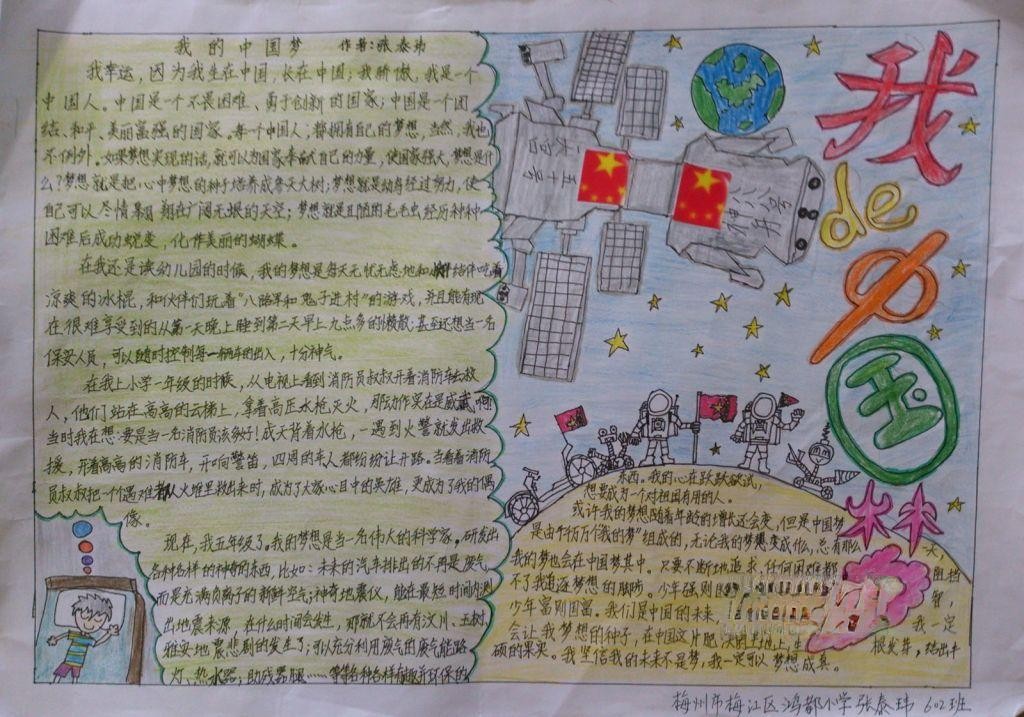 我的中国梦 作者:张泰玮
我幸运,因为我生在中国,长在中国;我骄傲,我是一个
中国人。中国是一个不畏困难、勇于创新的国家;中国是一个团
结、和平、美丽富强的国家。每一个中国人,都拥有自己的梦想,当然,我也
不例外。如果梦想实现的话,就可以为国家奉献自己的力量,使国家强大。梦想是什
么?梦想就是把心中梦想的种子培养成参天大树;梦想就是幼鸟经过努力,使
自己可以尽情翱翔在广阔无垠的天空;梦想就是丑陋的毛毛虫经历种种
困难后成功蜕变,化作美丽的蝴蝶。
在我还是读幼儿园的时候,我的梦想是每天无忧无虑地和伙伴结伴吃着
凉爽的冰棍,和伙伴们玩着“八路军和鬼子进村”的游戏,并且能有现
在很难享受到的从第一天晚上睡到第二天早上九点多的懒散;甚至还想当一名
保安人员,可以随时控制每一辆车的出入,十分神气。
在我上小学一年级的时候,从电视上看到消防员叔叔开着消防车去救
人,他们站在高高的云梯上,拿着高压水枪灭火,那动作实在是威武啊
当时我在想:要是当一名消防员该多好!成天背着水枪,一遇到火警就发出救
援,开着高高的消防车,开响警笛,四周的车人都纷纷让开路。当看着消防
员叔叔把一个个遇难者从火堆里救出来时,成为了大家心目中的英雄,更成为了我的偶
像。
现在,我五年级了,我的梦想是当一名伟大的科学家。研发出
各种各样的神奇的东西,比如:未来的汽车排出的不再是废气,
而是充满负离子的新鲜空气;神奇地震仪,能在最短时间内测
出地震来源,在什么时间会发生,那就不会再有汶川、玉树、
雅安地震悲剧的发生了;可以充分利用废气的废气能路
灯、热水器;助残器腿……等等各种各样有趣并环保的
东西。我的心在跃跃欲试,
想要成为一个对祖国有用的人。
或许我的梦想随着年龄的增长还会变,但是中国梦
是由千千万万个“我的梦”组成的,无论我的梦想变成什么,总有那么
一天,
我的梦也会在中国梦其中。只要不断地追求,任何困难都
阻挡
不了我追逐梦想的脚步。少年强则国
智,
少年富则国富。我们是中国的未来,
我一定
会让我梦想的种子,在中国这片肥沃的土地上,生
根发芽,结出丰
硕的果实。我坚信我的未来不是梦,我一定可以梦想成真。
天宫
五十号
神八
舟号
我
de
中
国
梦
梅州市梅江区鸿都小学 张泰玮 602班